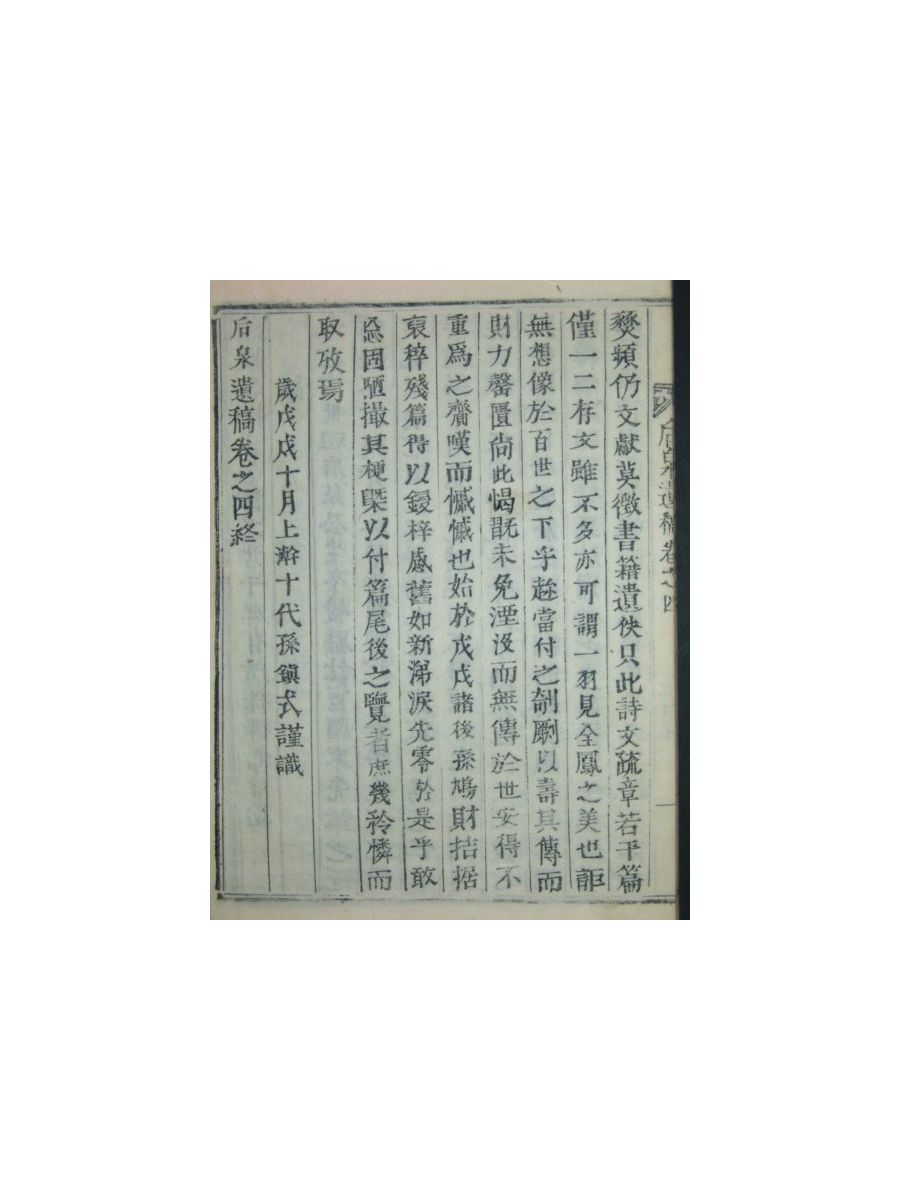 燹頻仍文獻莫徵書籍遺佚只此詩文疏章若干篇
僅一二存文雖不多亦可謂一羽見全鳳之美也詎
無想像於百世之下乎玆當付之剞劂以壽其傳而
財力罄匱尙此愒翫未免湮沒而無傳於世安得不
重爲之齎嘆而慽慽也始於戊戌諸後孫鳩財拮据
裒稡殘篇得以鋟梓感舊如新涕淚先零於是乎敢
忘固陋撮其梗槩以付篇尾後之覽者庶幾矜憐而
取攷焉
歲戊戌十月上澣十代孫鎭式謹識
后泉遺稿卷之四終
后泉遺稿卷之四